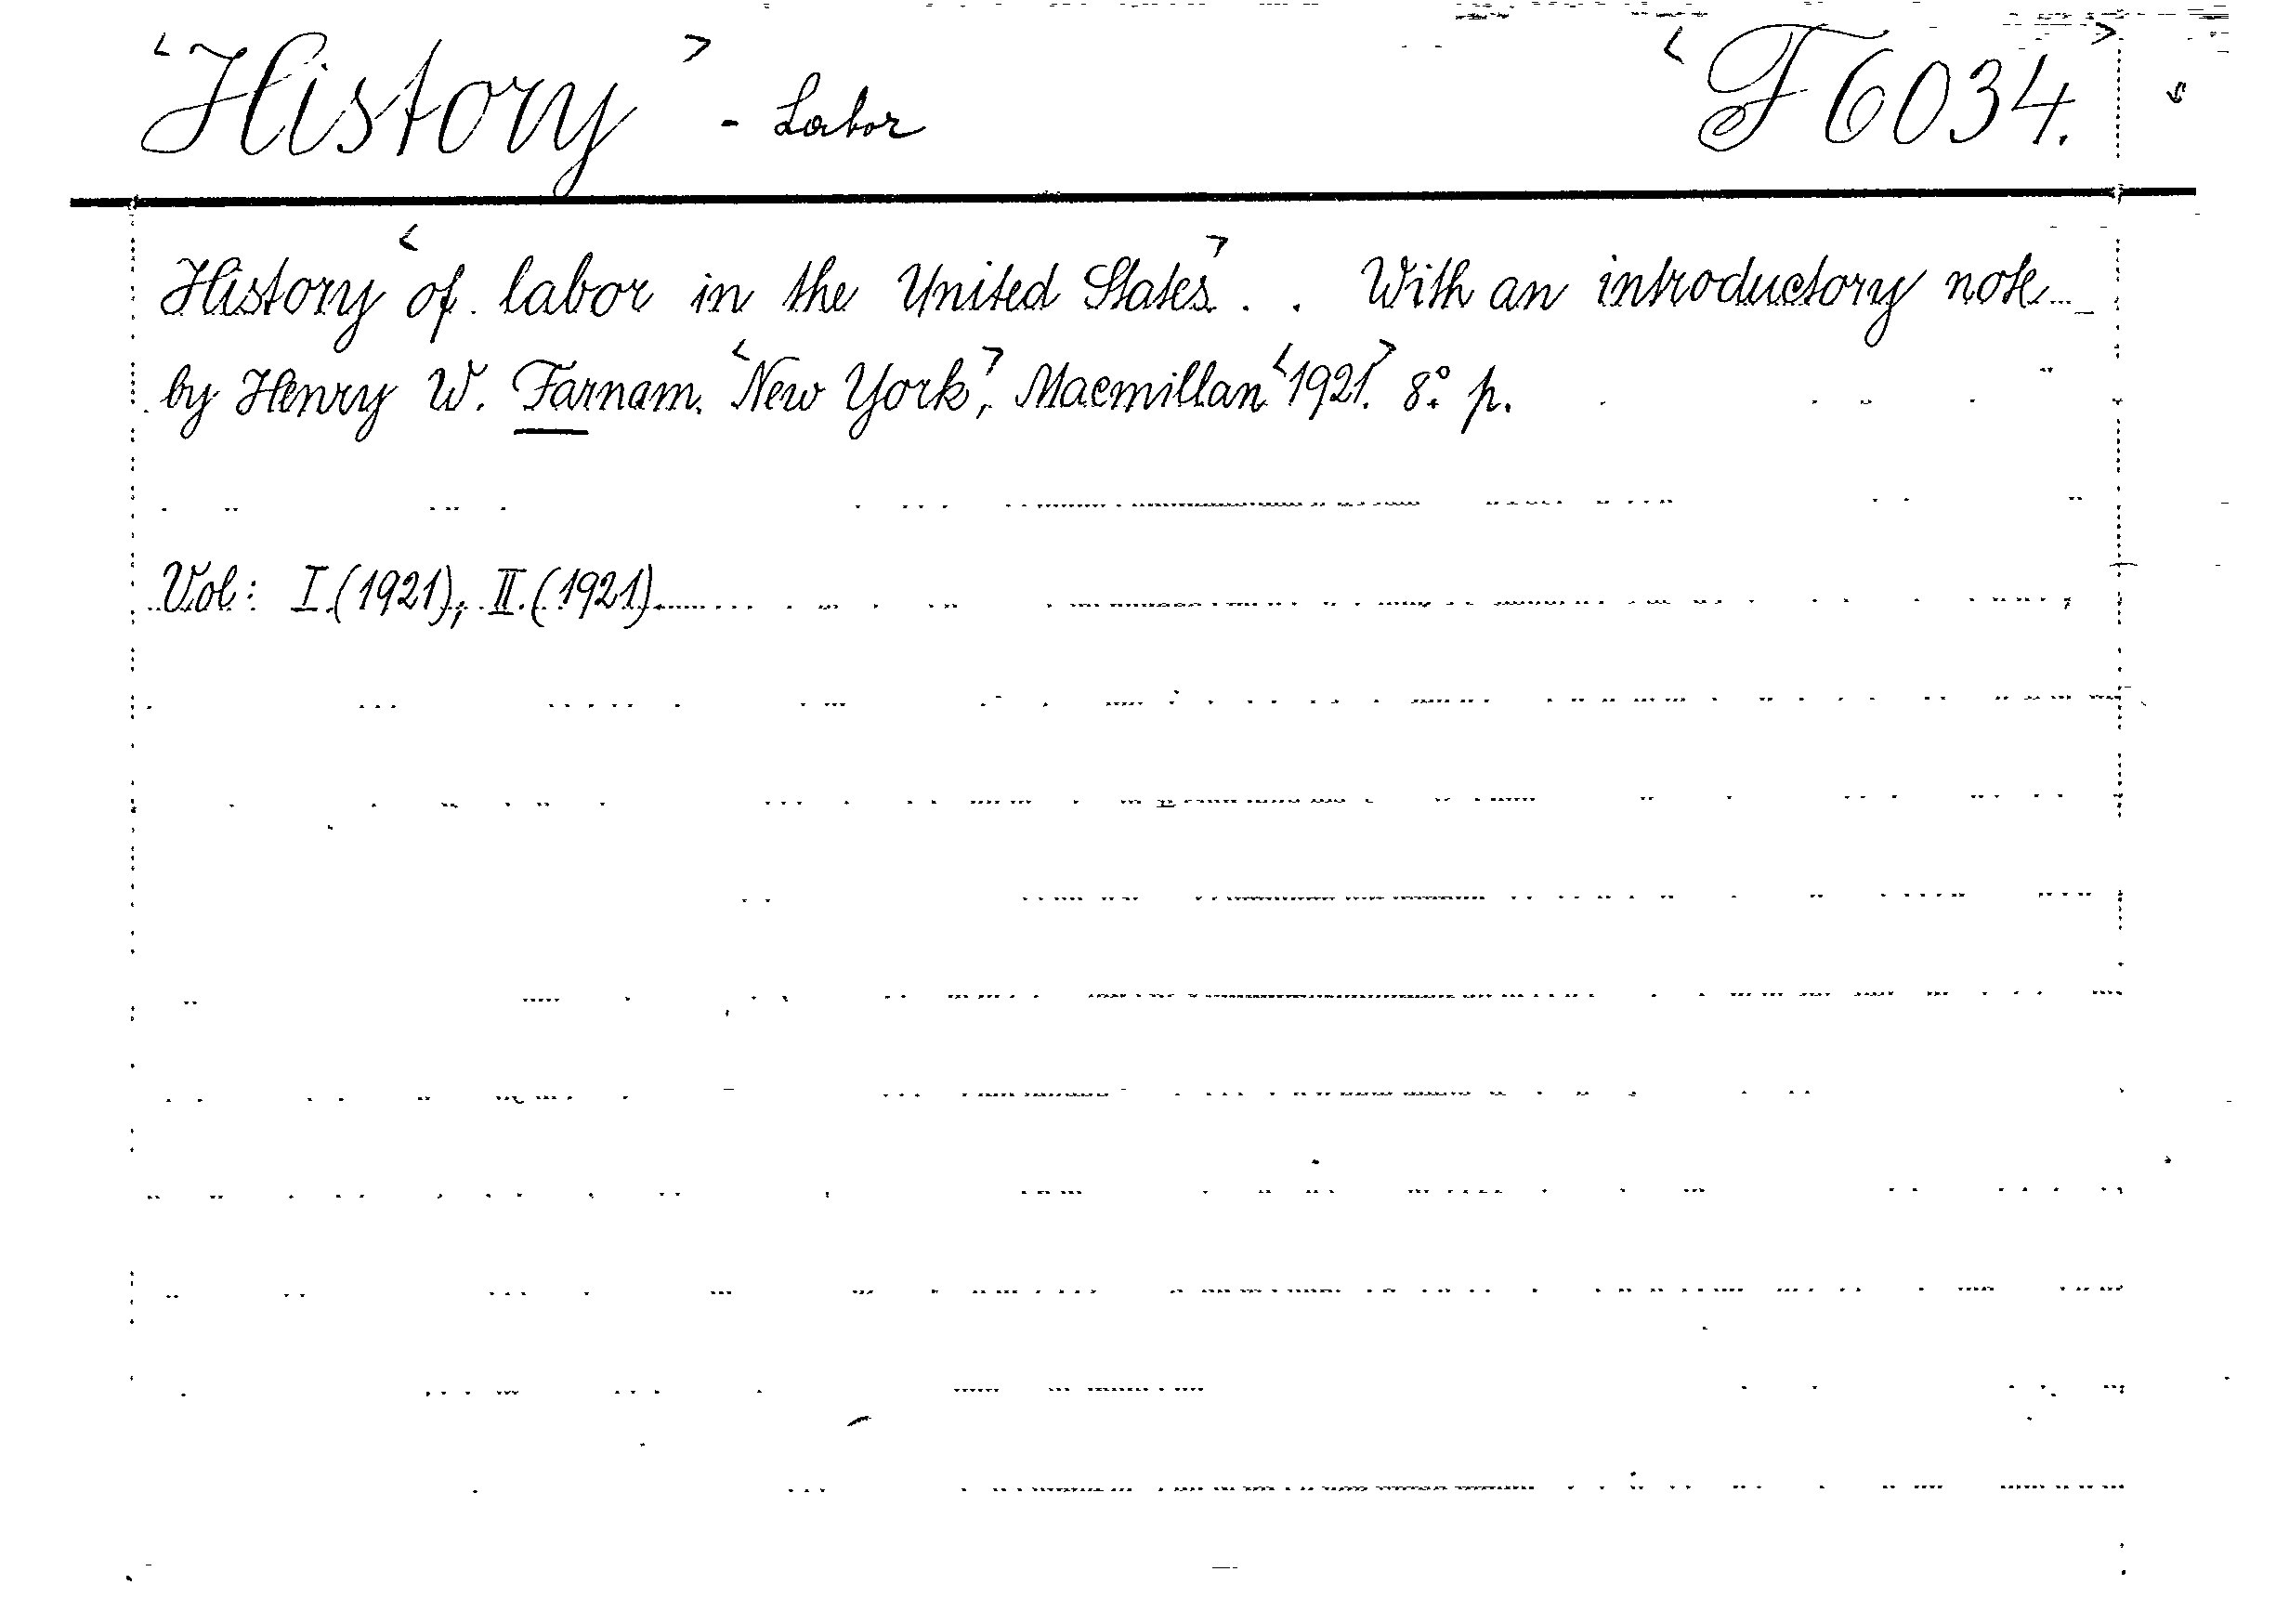 <History> - Labor <F6034.>
History <of labor in the United States>. . With an introductory note
by Henry W. Farnam. <New York>, Macmillan <1921.> 8° p.
Vol: I. (1921), II. (1921).